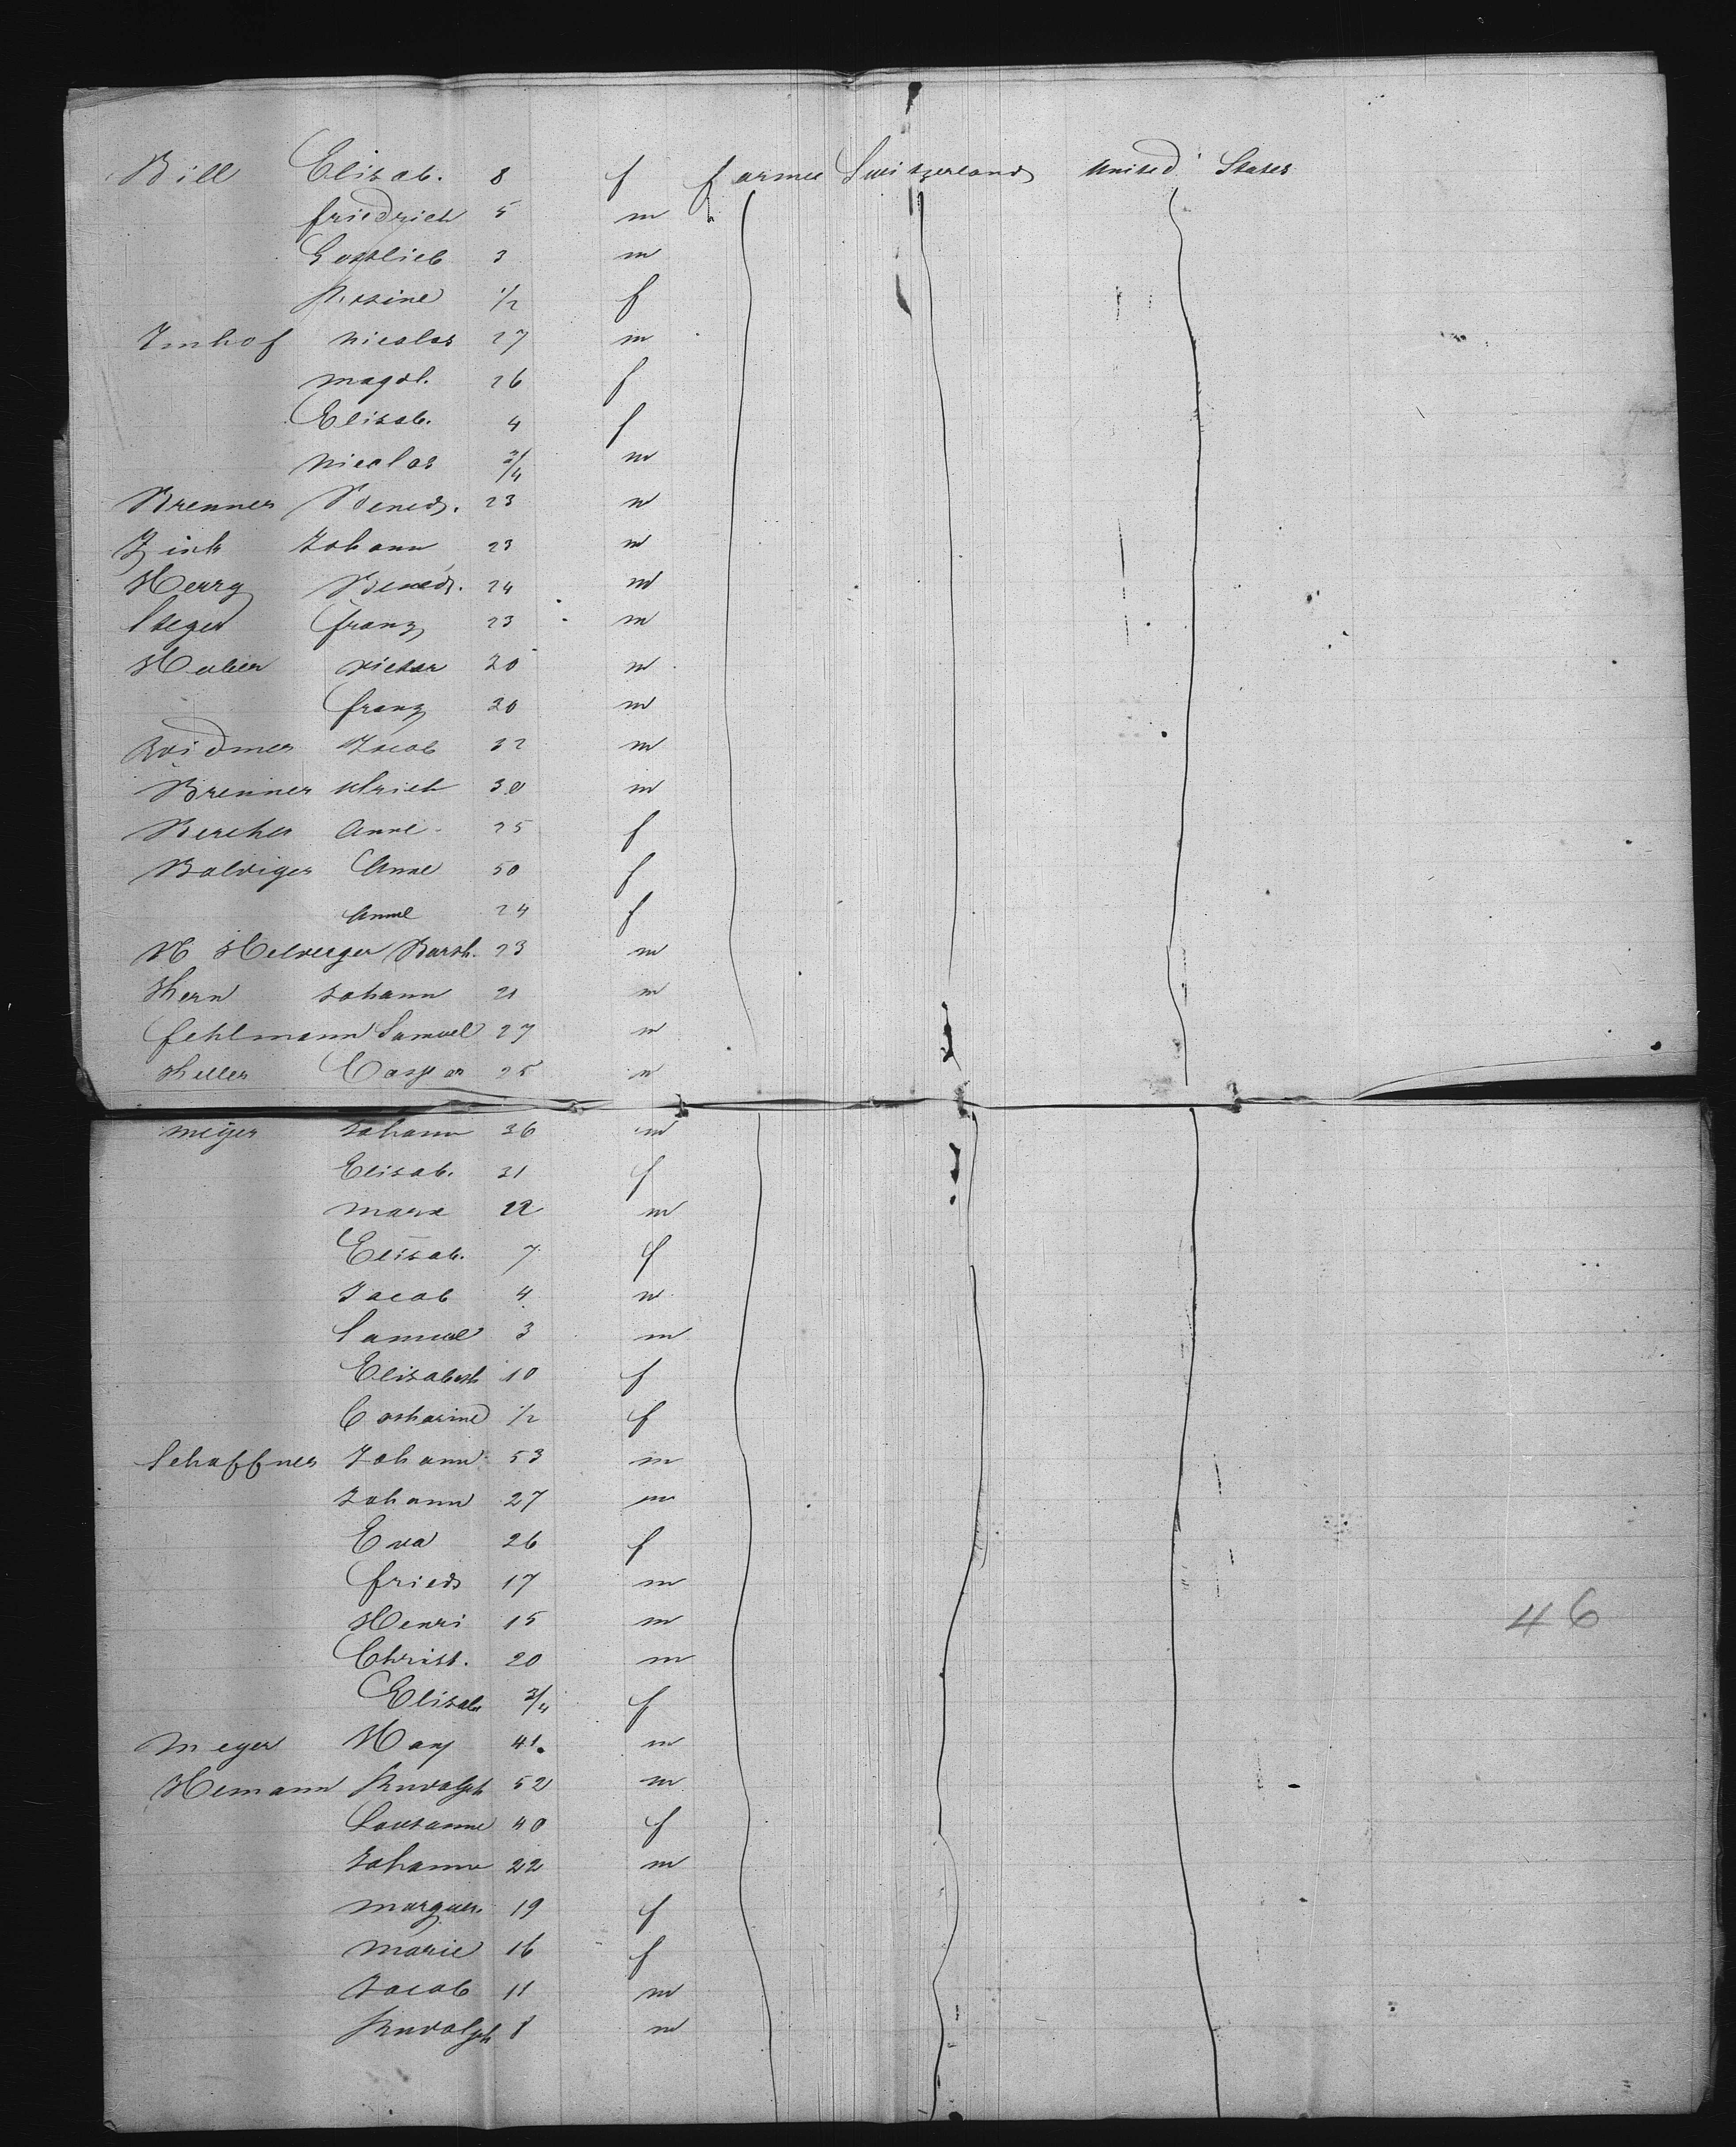 Bill Elisab. 8 f farmer Switzerland United States
friedrich 5 m
Gottlieb 3 m
Rosine 1/2 f
Imhof nicolas 27 m
magdl. 26 f
Elisab. 4 f
nicolas 3/4 m
Brenner Bened. 23 m
Zink Johann 23 m
Herry Bened. 24 m
Steger franz 23 m
Huber victor 20 m
franz 20 m
Widmer Jacob 32 m
Brenner Ulrich 30 m
Bercher Anne 25 f
Balviger Anne 50 f
Anne 24 f
H Helverger Barth. 23 m
Kern Johann 21 m
fehlmann Samuel 27 m
Keller Caspar 25 m
meyer Johann 36 m
Elisab. 31 f
marx 12 m
Elisab. 7 f
Jacob 4 m
Samuel 3 m
Elisabeth 10 f
Catharine 1/2 f
Schaffner Johann 53 m
Johann 27 m
Eva 26 f
fried 17 m
Henri 15 m
Christ. 20 m
Elisab 3/4 f
46
meyer Hans 41 m
Hemann Rudolph 52 m
Sousanne 40 f
Johann 22 m
marguer. 19 f
marie 16 f
Jacob 11 m
Rudolph 8 m